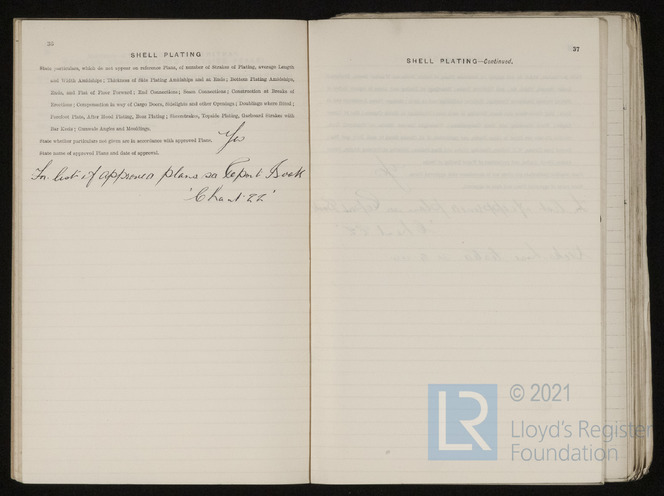 SHELL PLATING
State particulars, which do not appear on reference Plans, of number of Strakes of Plating, average Length
and Width Amidships; Thickness of Side Plating Amidships and at Ends; Bottom Plating Amidships,
Ends, and Flat of Floor Forward; End Connections; Seam Connections; Conservation at Breaks of
Erections; Compensation in way of Cargo Doors, Sidelights and other Openings; Doublings where fitted;
Forefoot Plate, After Hood Plating, Boss Plating; Sheerstrakes, Topside Plating, Garboard Strakes with
Bar Keels; Gunwale Angles and Mouldings.
State whether particulars not given are in accordance with approved Plans. Yes
State name of approved Plans and date of approval.
For list of approved plans see Report Book
"Chant 22"
37
SHELL PLATING—Continued.
LR
© 2021
Lloyd's Register
Foundation